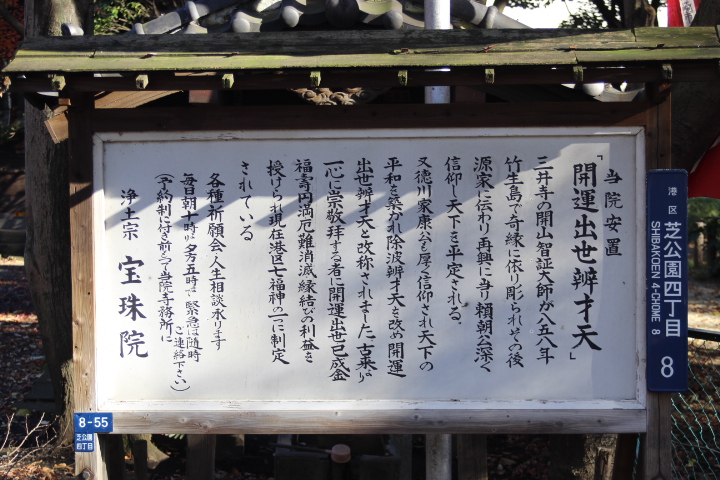 当院安置
「開運出世辨才天」
三井寺の開山智証大師が八五八年
竹生島で奇縁に依り彫られ、その後
源家に伝わり再興に当り頼朝公深く
信仰し天下を平定される。
又徳川家康公も厚く信仰され天下の
平和を築かれ除波辨才天を改め開運
出世辨才天と改称されました。古来より
一心に崇敬拝する者に開運出世已成金
福寿円満厄難消滅縁結びの利益を
授けられ現在港区七福神の一に制定
されている
各種祈願会・人生相談承ります
毎日朝十時より夕方五時で緊急は随時
(予約制に付き前もって当院寺務所に
ご連絡下さい)
浄土宗 宝珠院
港区
芝公園四丁目
SHIBAKOEN 4-CHOME 8
8
8-55
芝公園
四丁目